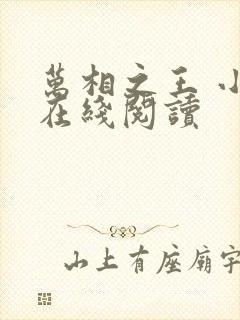 萬相之王 小
在綫閱讀
山上有座廟宇